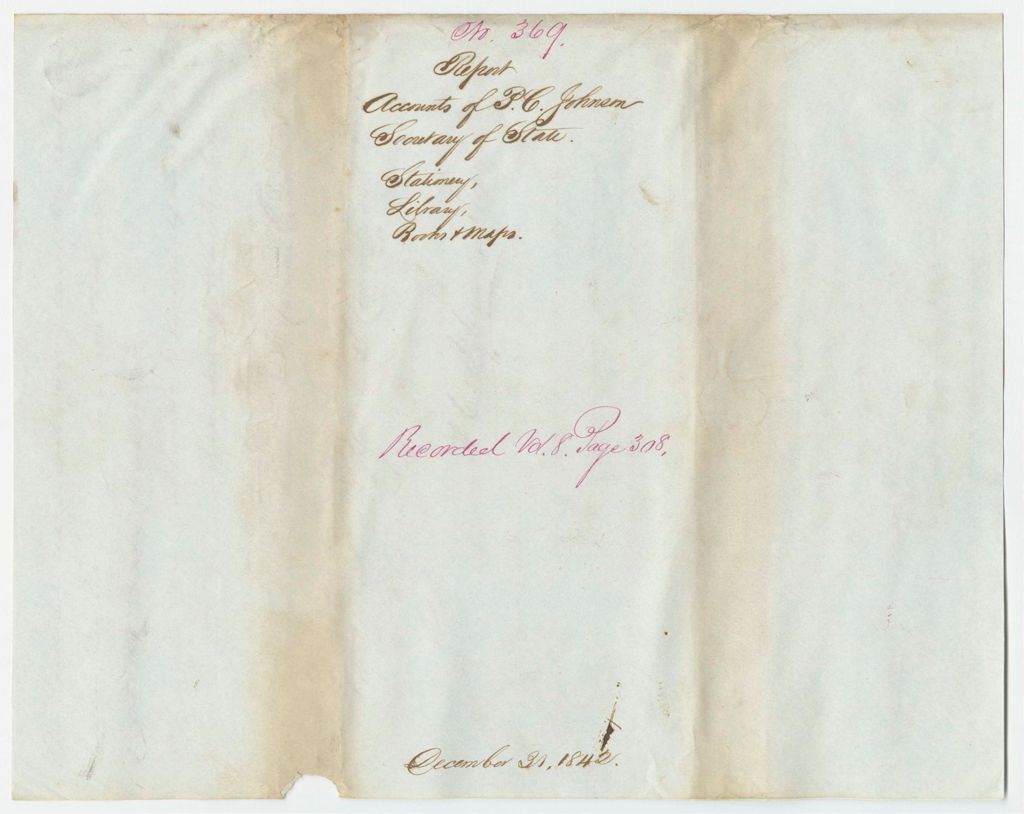 No. 369.
Report
Accounts of P. C. Johnson
Secretary of State.
Stationery,
Library,
Books & Maps.
Recorded Vol. 8. Page 308.
December 31, 1842.